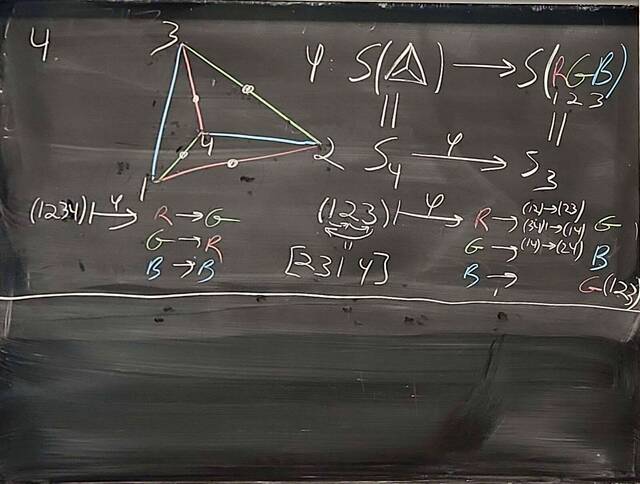 4.
3
4
1
2
φ: S(△) → S(RGB)
1 2 3
|| ||
S₄ →φ S₃
(1234) ↦φ R → G
G → R
B → B
(123) ↦φ R → (12)→(23) G
(34)→(14)
G → (14)→(24) B
B → G (123)
||
[2314]